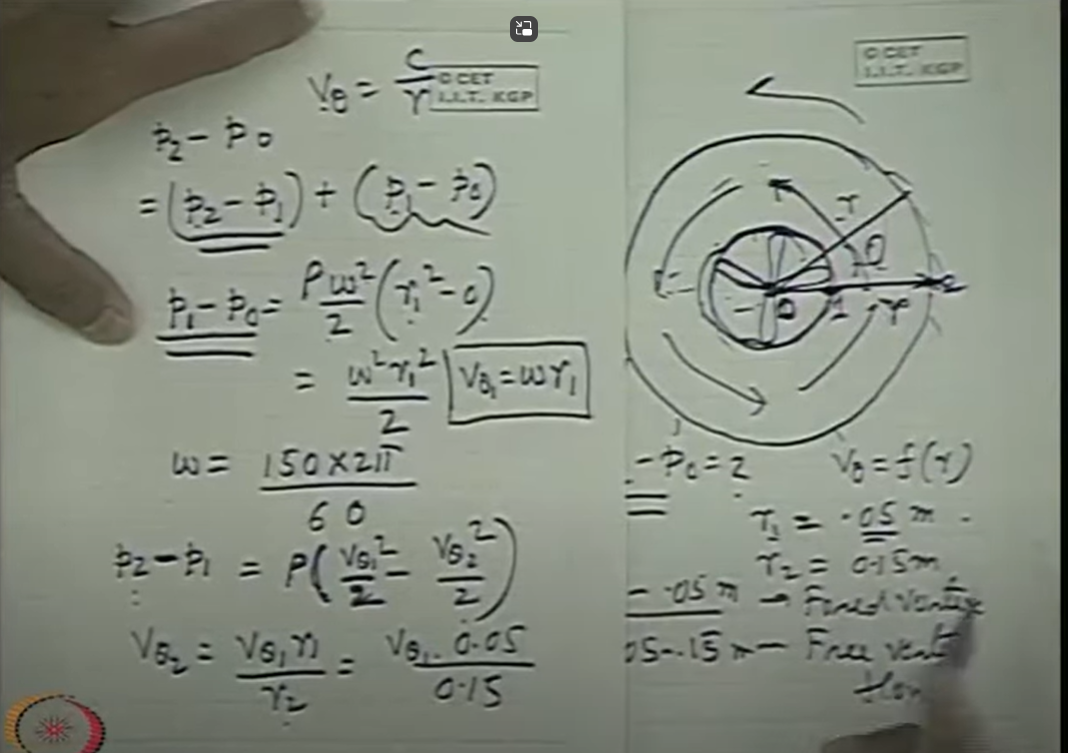 V_θ = C/r
© CET
I.I.T. KGP
p₂ - p₀
= (p₂ - p₁) + (p₁ - p₀)
p₁ - p₀ = ρω²/2 (r₁² - 0)
= ω² r₁²/2
V_θ₁ = ω r₁
ω = 150 × 2π / 60
p₂ - p₁ = ρ(V_θ₁²/2 - V_θ₂²/2)
V_θ₂ = V_θ₁ r₁ / r₂ = V_θ₁ . 0.05 / 0.15
© CET
I.I.T. KGP
r
θ
0
1
r
2
- p₀ = ?
V_θ = f(r)
r₁ = .05 m
r₂ = 0.15 m
- .05 m → Forced vortex
05 - .15 m — Free